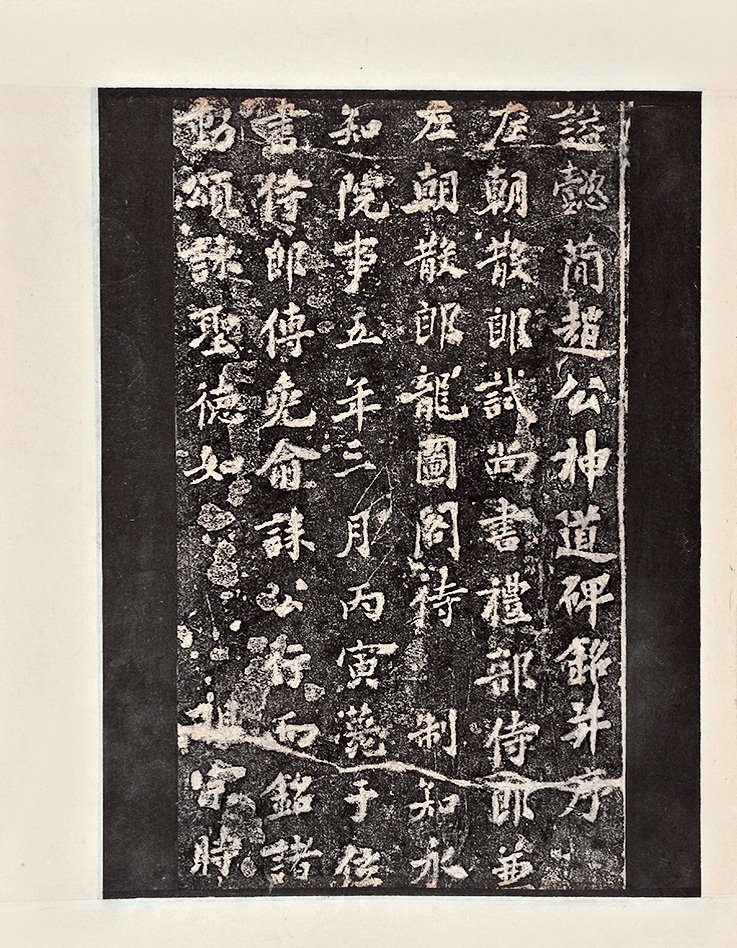 謚懿簡趙公神道碑銘并序
左朝散郎試尚書禮部侍郎兼
左朝散郎龍圖閣待 制知永
知院事五年三月丙寅薨于位
書侍郎傅堯俞誄公行而銘諸
勁頌詠聖德如 祖宗時